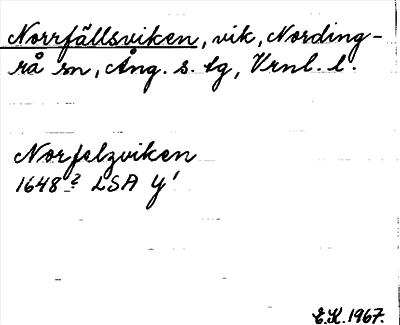 Norrfällsviken, vik, Nording-
rå sn, Ång. s. tg, Vrnl. l.
Norfelzviken
1648 ? LSA Y'
E.K. 1967.